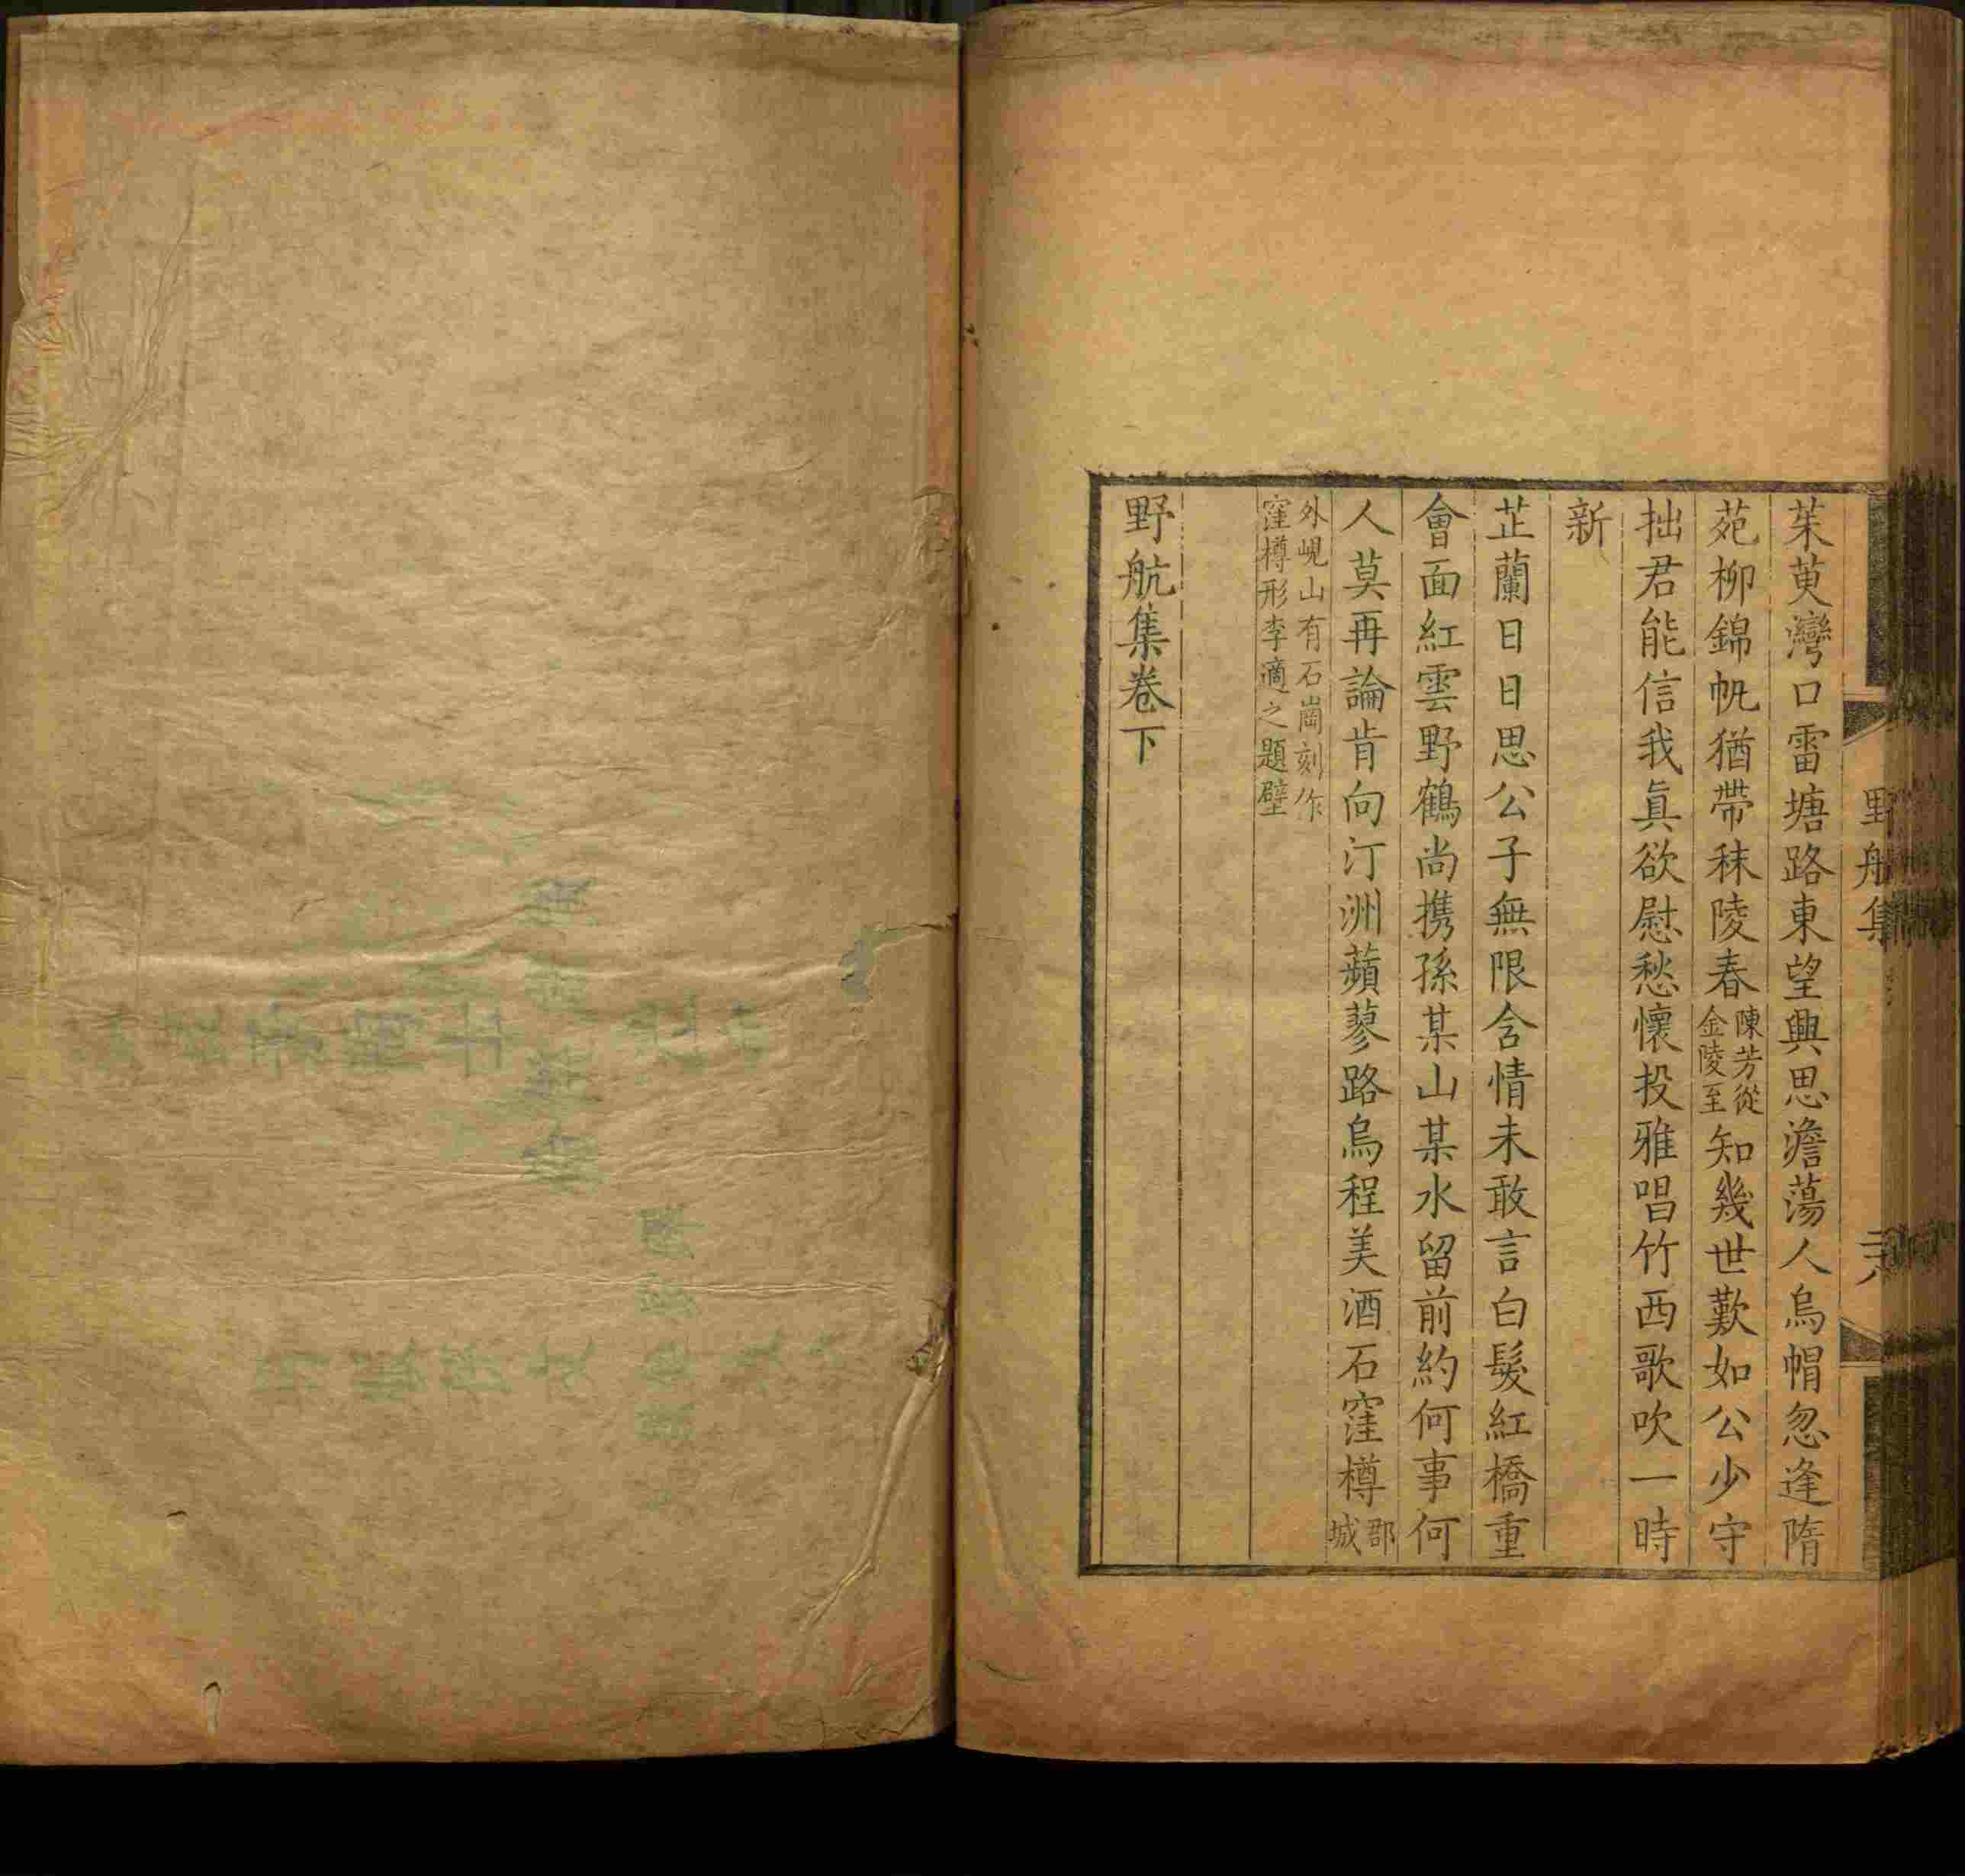 野航集
茱萸灣口雷塘路東望興思澹蕩人烏帽忽逢隋
苑柳錦帆猶帶秣陵春陳芳從金陵至知幾世歎如公少守
拙君能信我眞欲慰愁懷投雅唱竹西歌吹一時
新
芷蘭日日思公子無限含情未敢言白髮紅橋重
會面紅雲野鶴尚携孫某山某水留前約何事何
人莫再論肯向汀洲蘋蓼路烏程美酒石窪樽郡城
外峴山有石崗刻作
窪樽形李適之題壁
野航集卷下